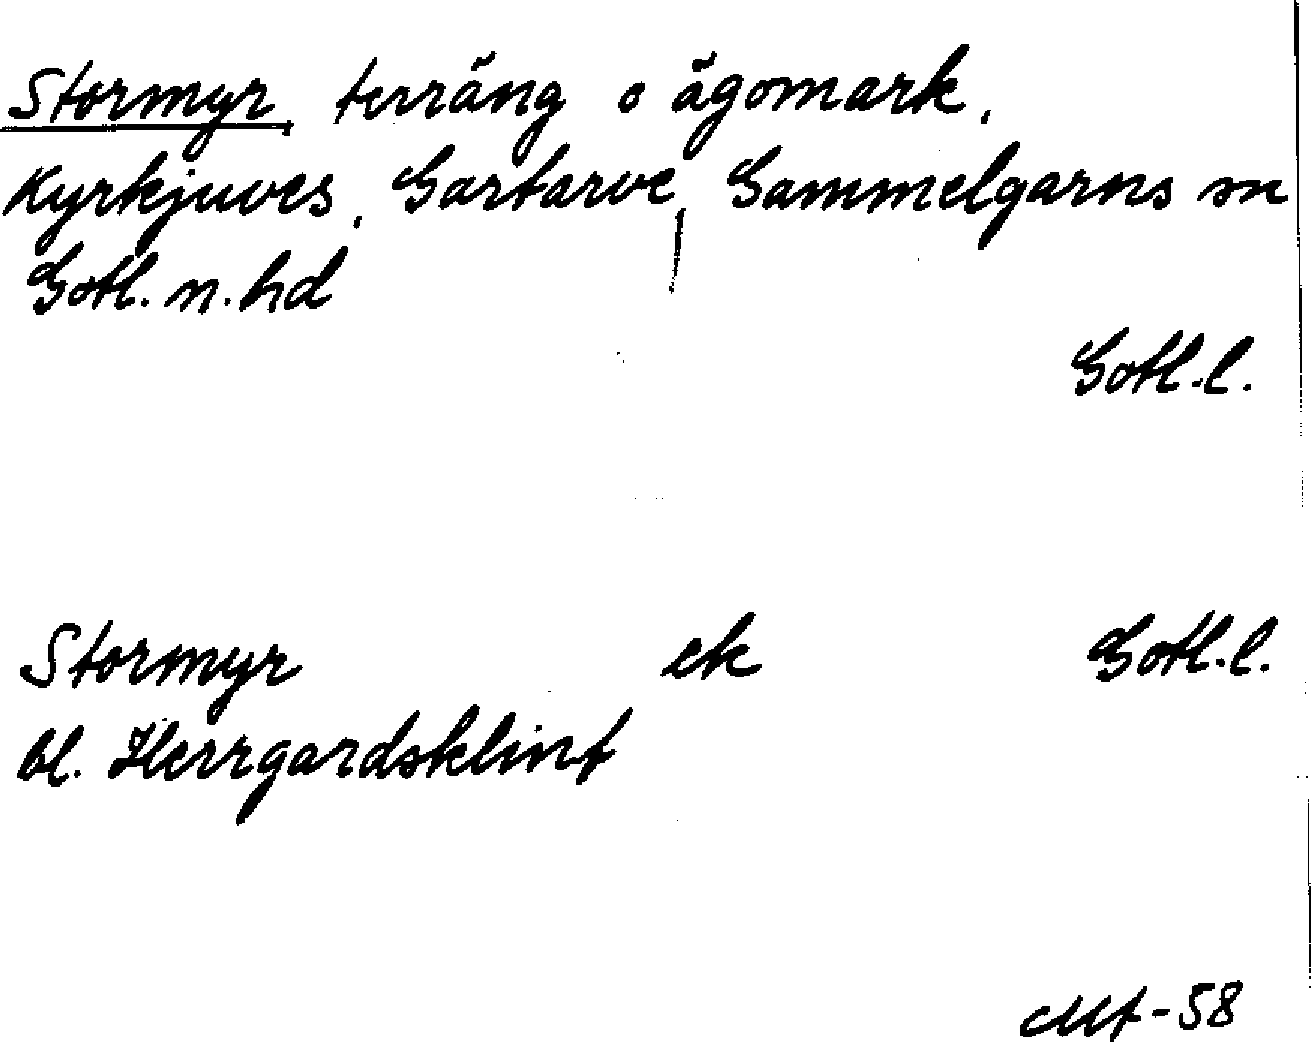 Stormyr, terräng o ägomark,
Kyrkjuves, Gartarve, Gammelgarns sn
Gotl. n. hd
Gotl. l.
Stormyr ek Gotl. l.
bl. Herrgardsklint
Mf-58